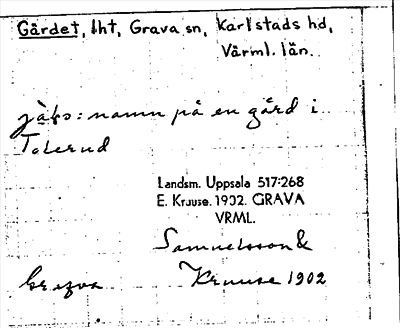 Gärdet, lht, Grava sn, Karlstads hd,
Värml. län.
: namn på en gård i
Tolerud
Landsm. Uppsala 517:268
E. Kruuse. 1902. GRAVA
VRML.
Samuelsson &
Grava Kruuse 1902